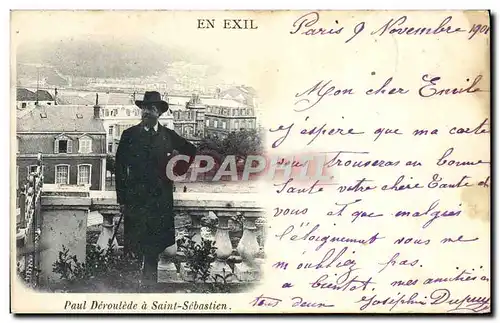 EN EXIL
Paris, 9 Novembre 1901
Mon cher Emile
j'espère que ma carte
vous trouveras en bonne
Santé votre chère Tante et
vous et que malgré
l'éloignement vous ne
m'oubliez pas.
a bientot, mes amitiés à
tous deux Joséphine Dupuy
CPARAMA
Paul Déroulède à Saint-Sébastien.